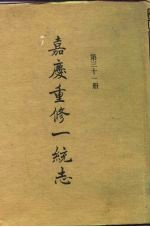 嘉慶重修一統志
第三十一册